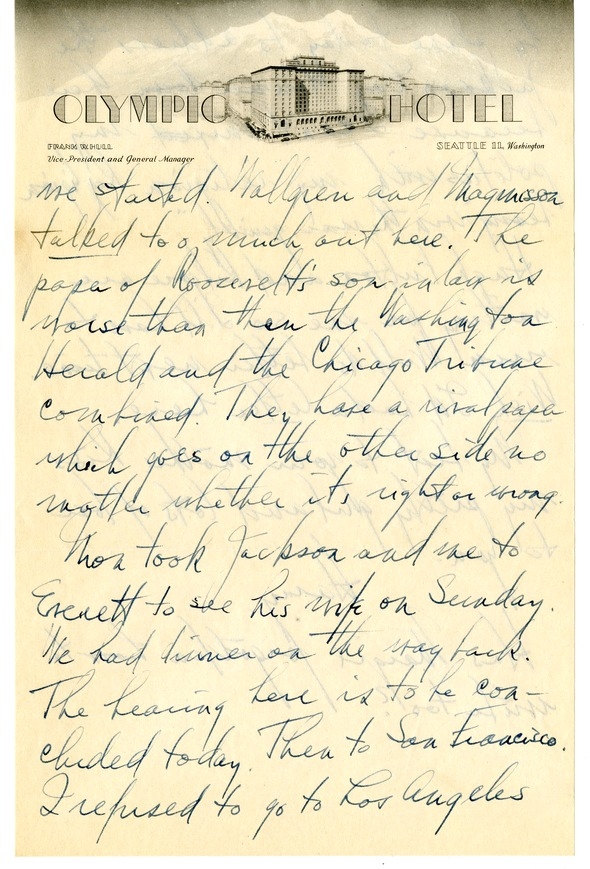 OLYMPIC HOTEL
FRANK W. HULL
Vice-President and General Manager
SEATTLE 11, Washington
we started. Wallgren and Magnusson
talked too much out here. The
papa of Roosevelt's son in law is
worse than then the Washington
Herald and the Chicago Tribune
combined. They have a rival papa
which goes on the other side no
matter whether its right or wrong.
Mon took Jackson and me to
Everett to see his wife on Sunday.
We had dinner on the way back.
The hearing here is to be con-
cluded today. Then to San Francisco.
I refused to go to Los Angeles